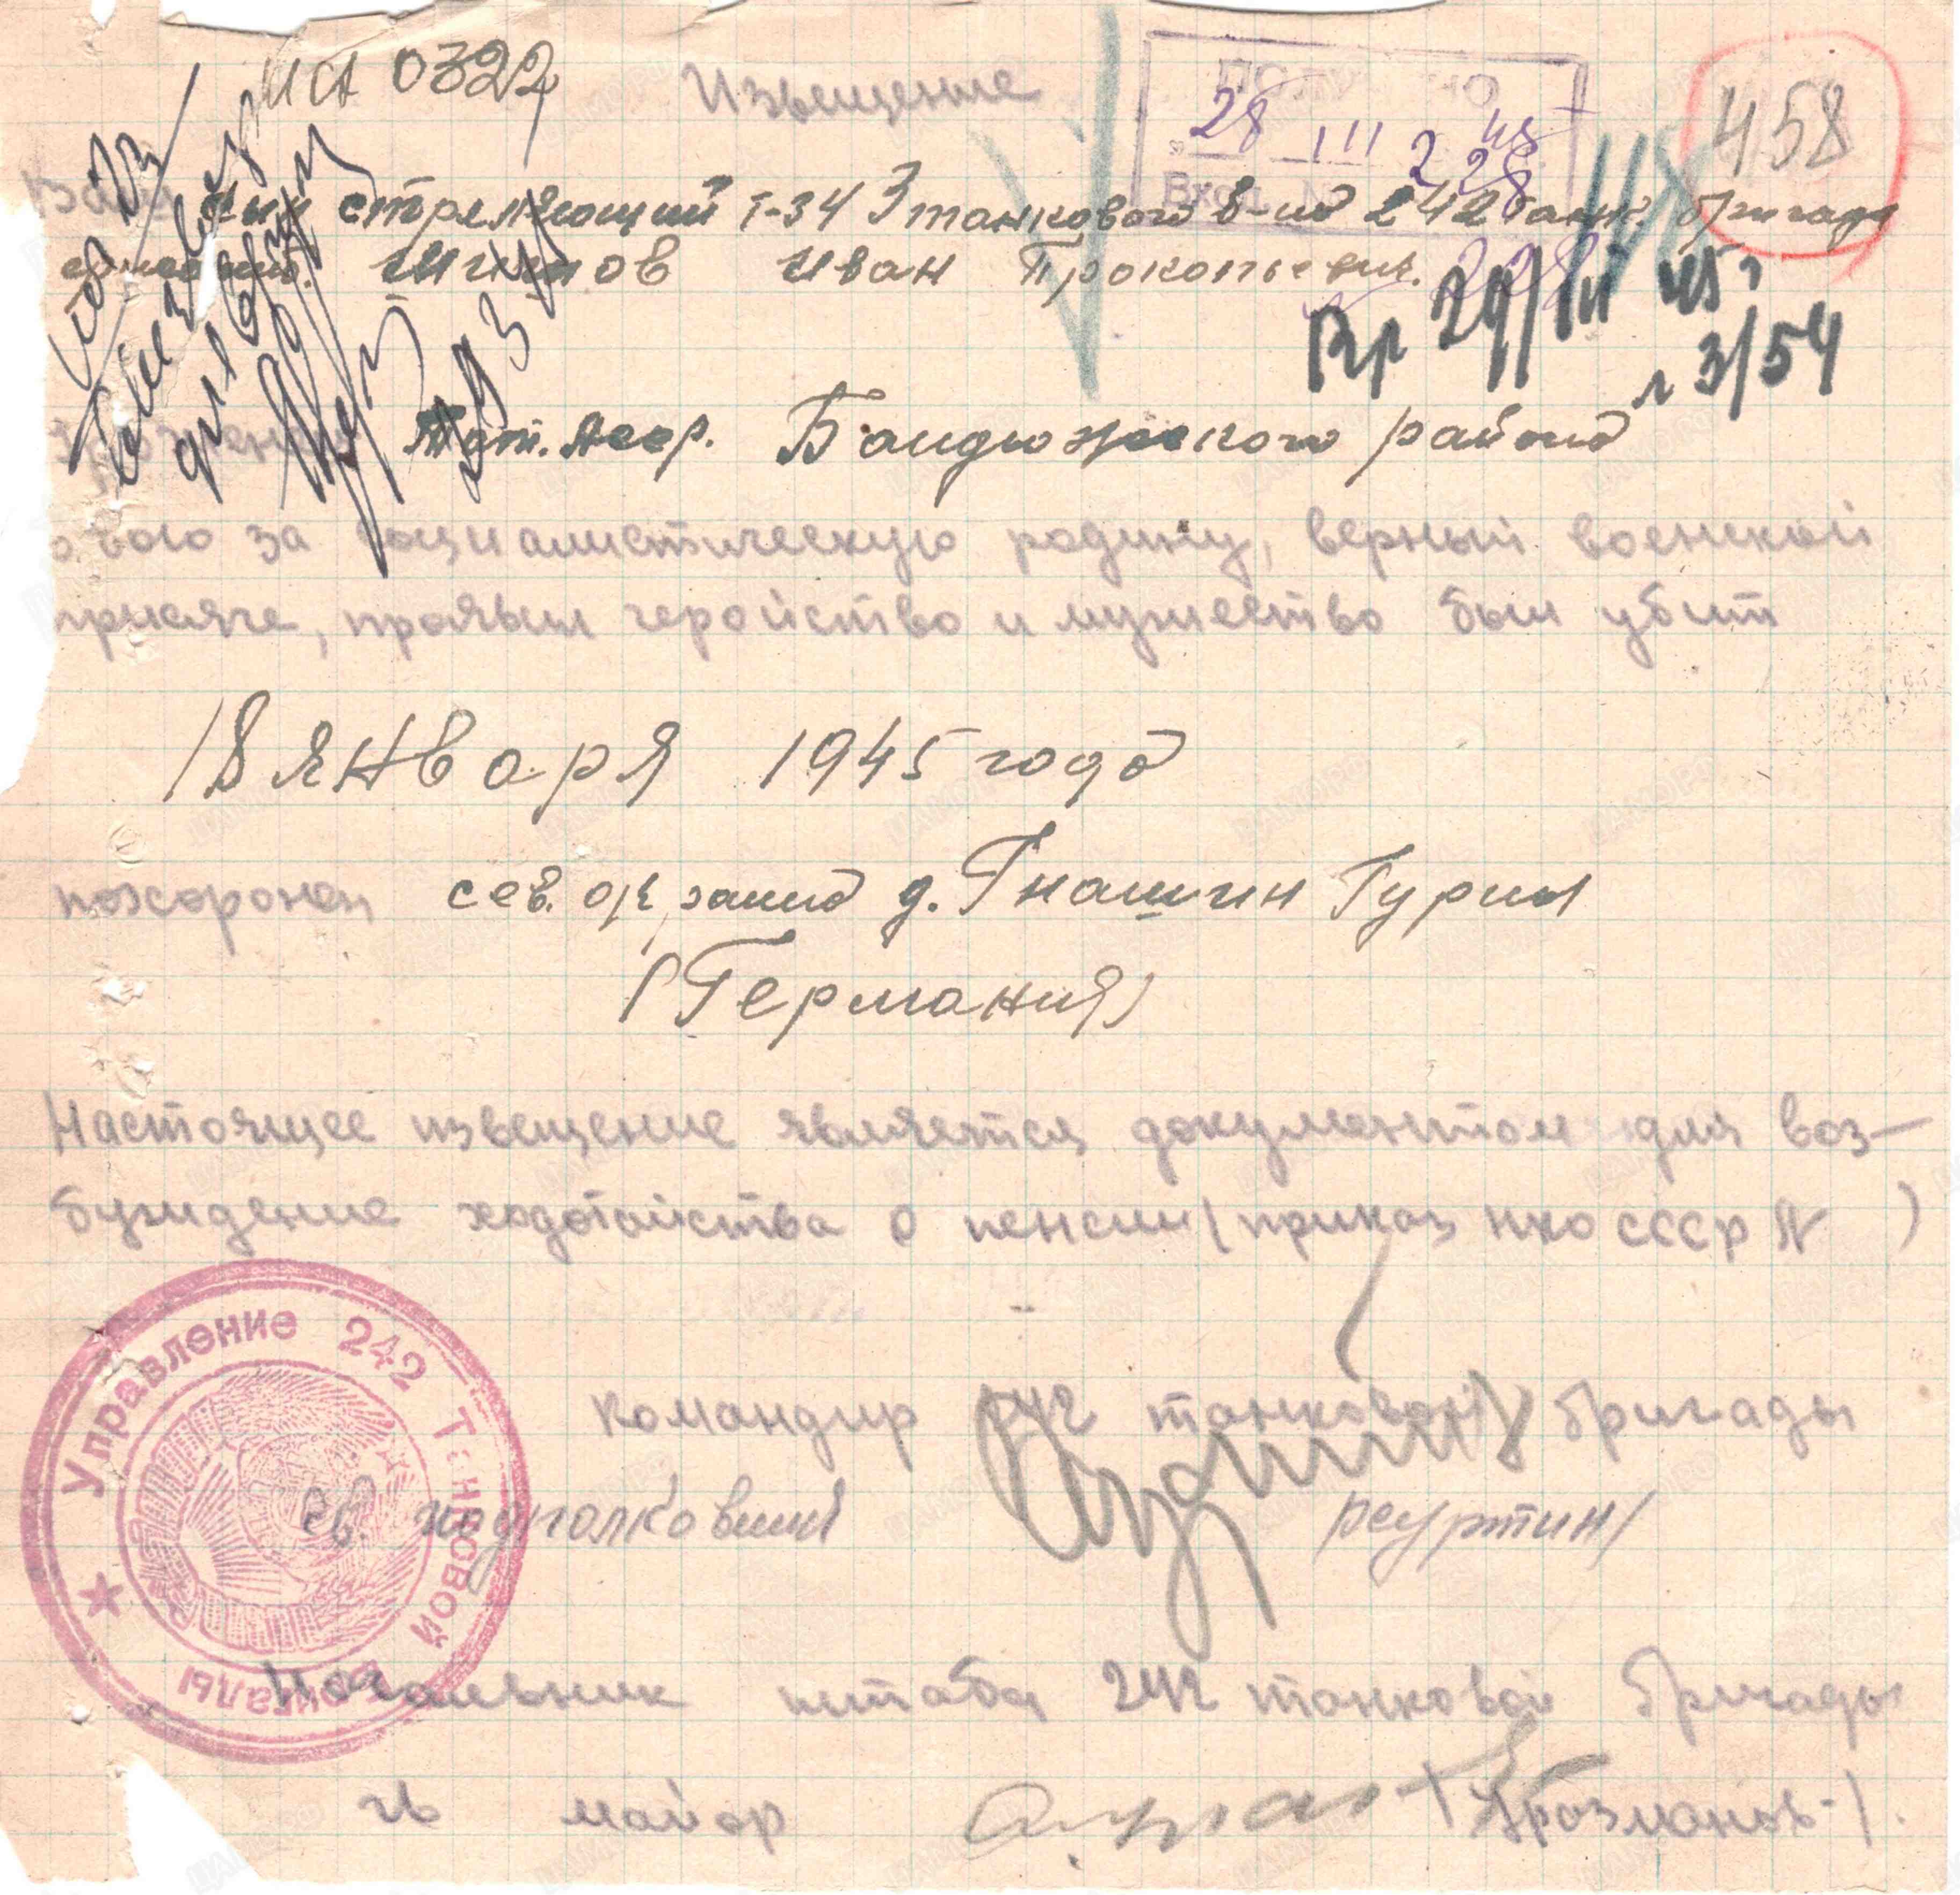 0322
Извещение
458
28 III 45
228
Ваш стреляющий Т-34 3 танкового б-на 242 танк. бригады
Иван Прокопьевич.
29/III 45 г
3/54
Тат. Асср. Бондюжского района
в бою за социалистическую родину, верный воинской
присяге, проявив геройство и мужество был убит
18 января 1945 года
похоронен сев. окраина д. Гнашин Гурны
(Германия)
Настоящее извещение является документом для воз-
буждение ходотайства о пенсии (приказ НКО СССР N )
Управление 242 Танковой Бригады
Командир 242 танковой бригады
гв. подполковник
Начальник штаба 242 танковой бригады
гв майор